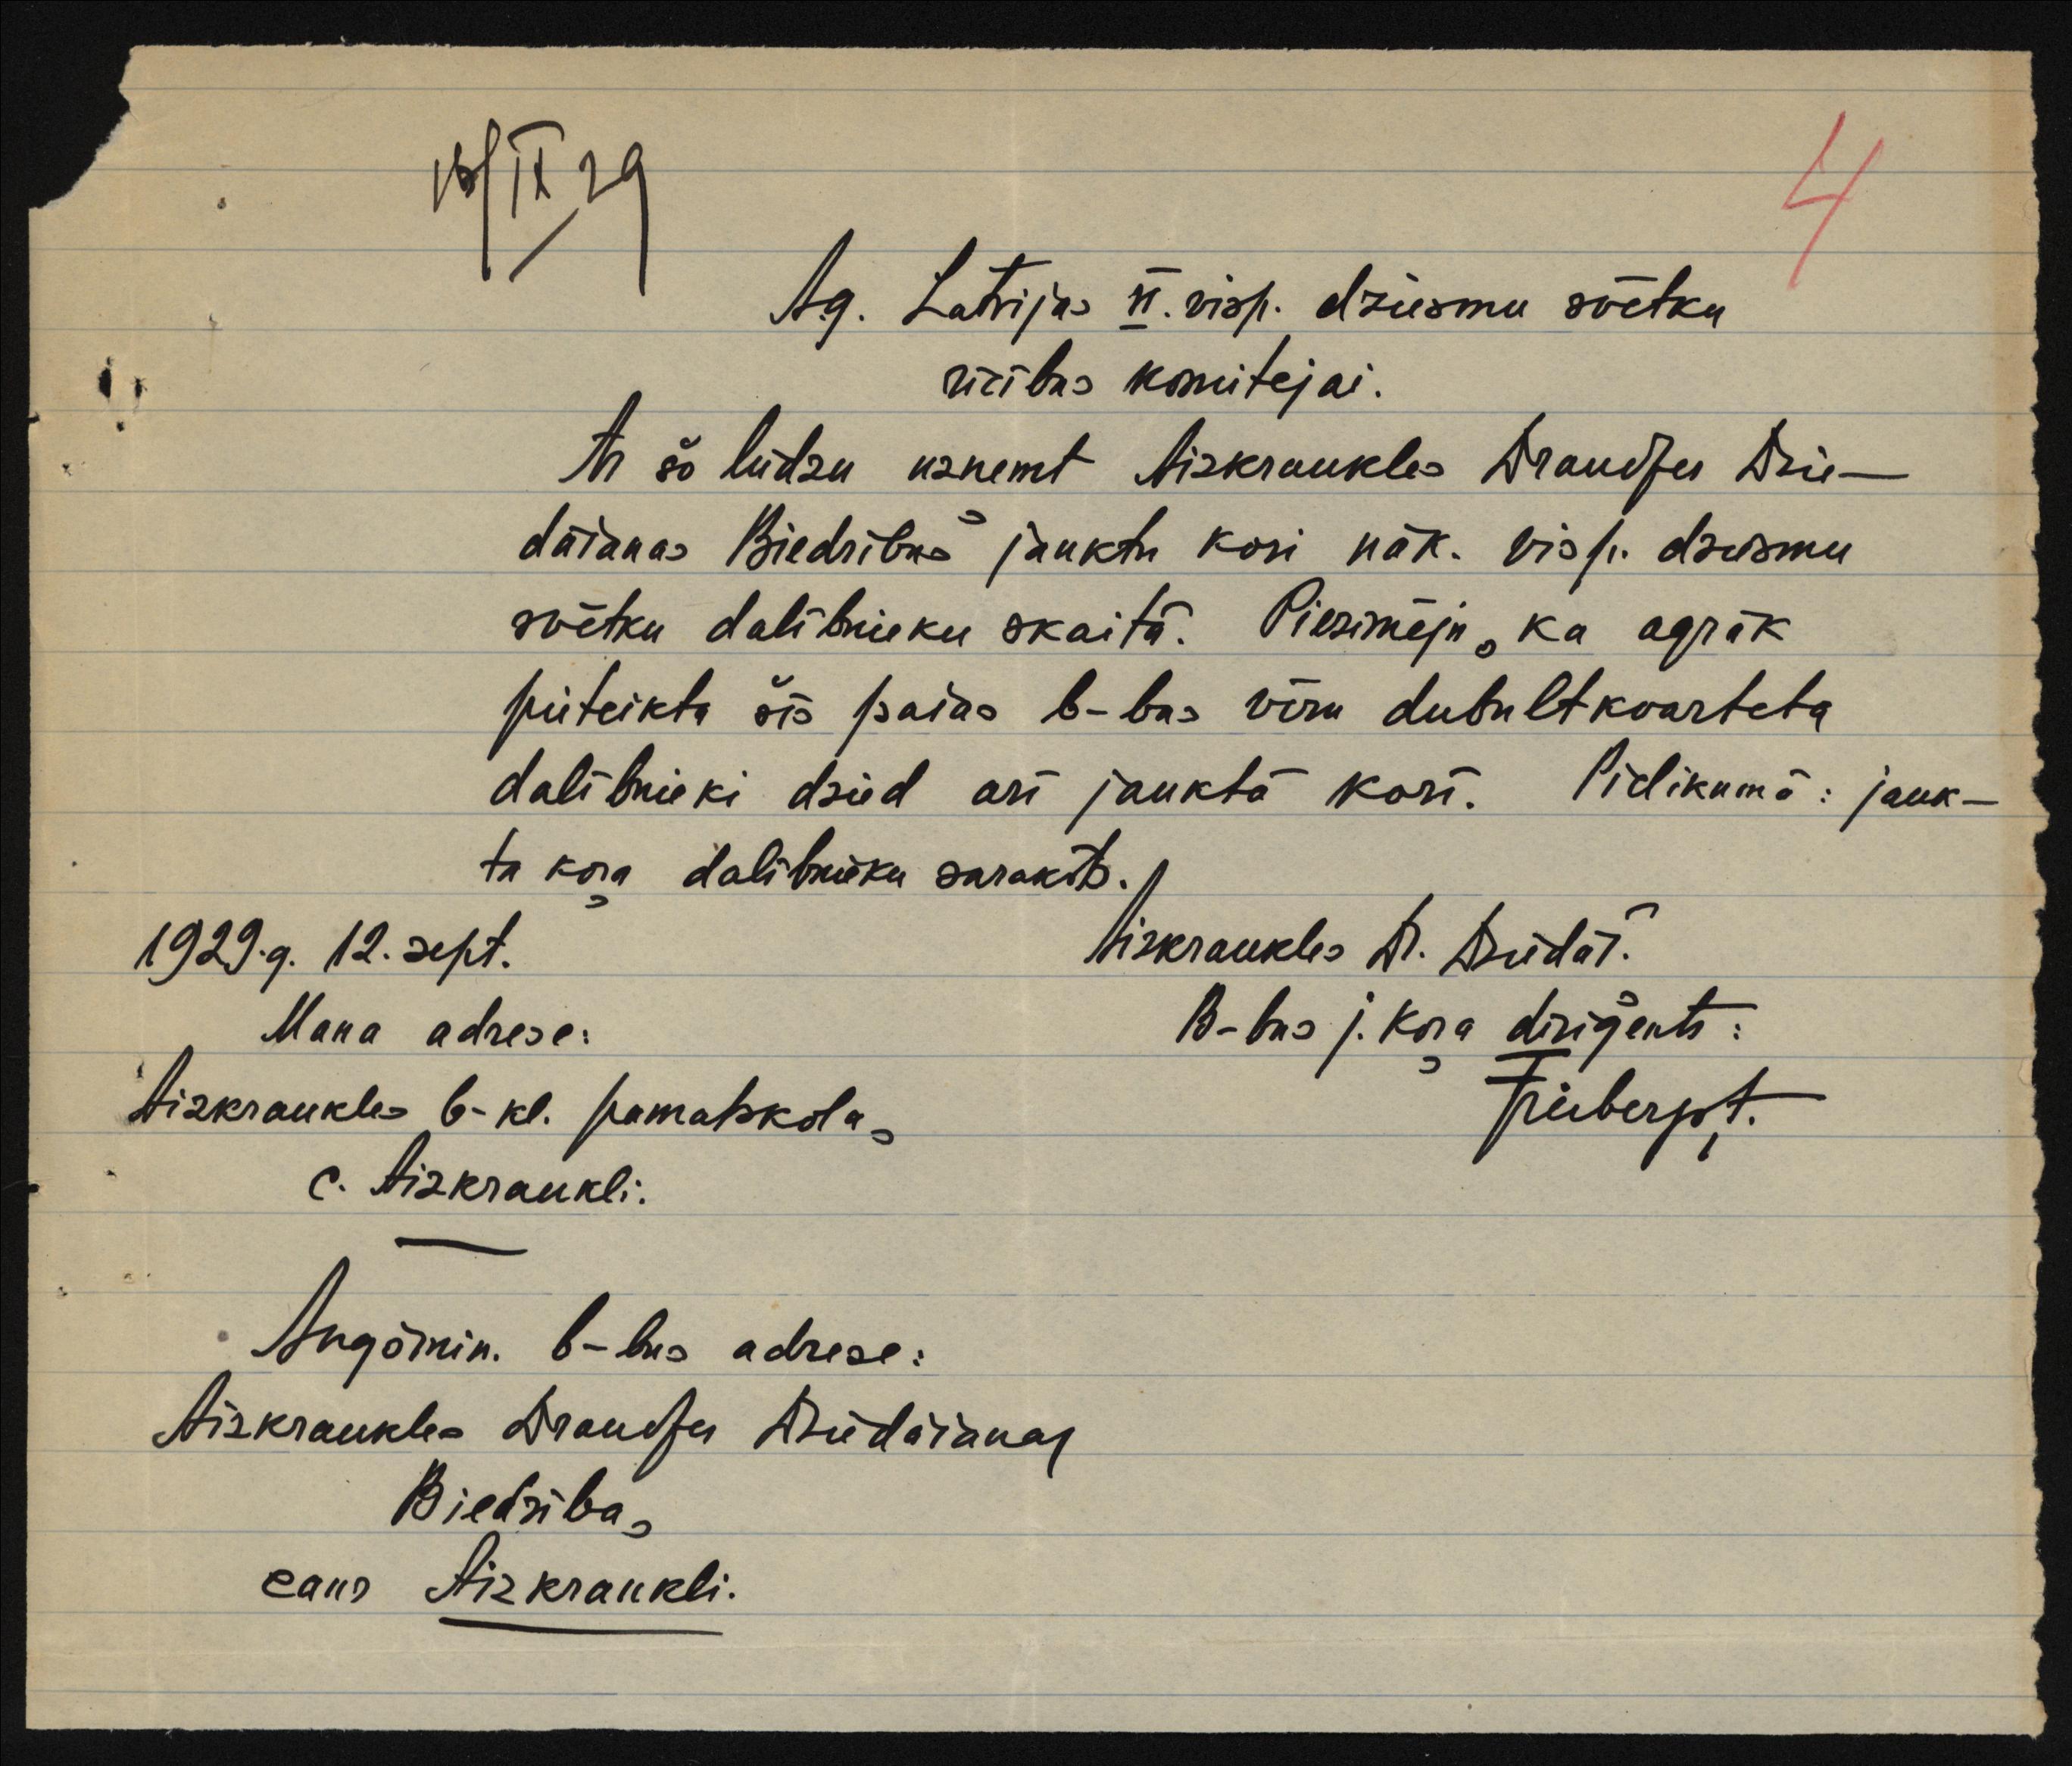 16/IX 29
4
A.g. Latvijas II. visp. dziesmu svētku
rīcības komitejai.
Ar šo lūdzu uzņemt Aizkraukles Draudzes Dzie-
dāšanas Biedrības jauktu kori nāk. visp. dziesmu
svētku dalībnieku skaitā. Piezīmēju, ka agrāk
pieteiktā šīs pašas b-bas vīru dubultkvarteta
dalībnieki dzied arī jauktā korī. Pielikumā: jauk-
ta koŗa dalībnieku saraksts.
1929.g. 12. sept.
Aizkraukles Dr. Dziedāš.
Mana adrese:
B-bas j. koŗa diriģents:
Aizkraukles 6-kl. pamatskolā,
c. Aizkraukli.
Augšmin. b-bas adrese:
Aizkraukles Draudzes Dziedāšanas
Biedrība,
caur Aizkraukli.